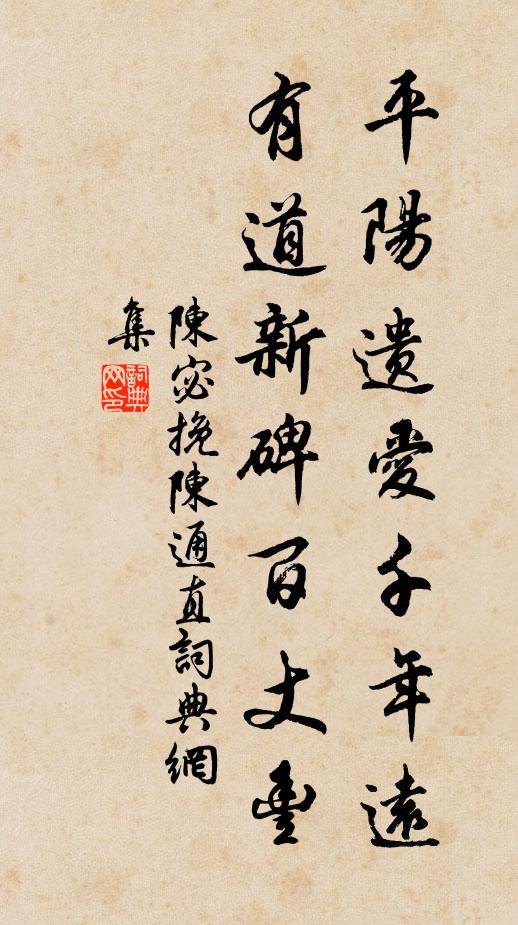 平陽遺愛千年遠
有道新碑百丈豐
陳宓挽陳通直詞典網
集
詞典
網印